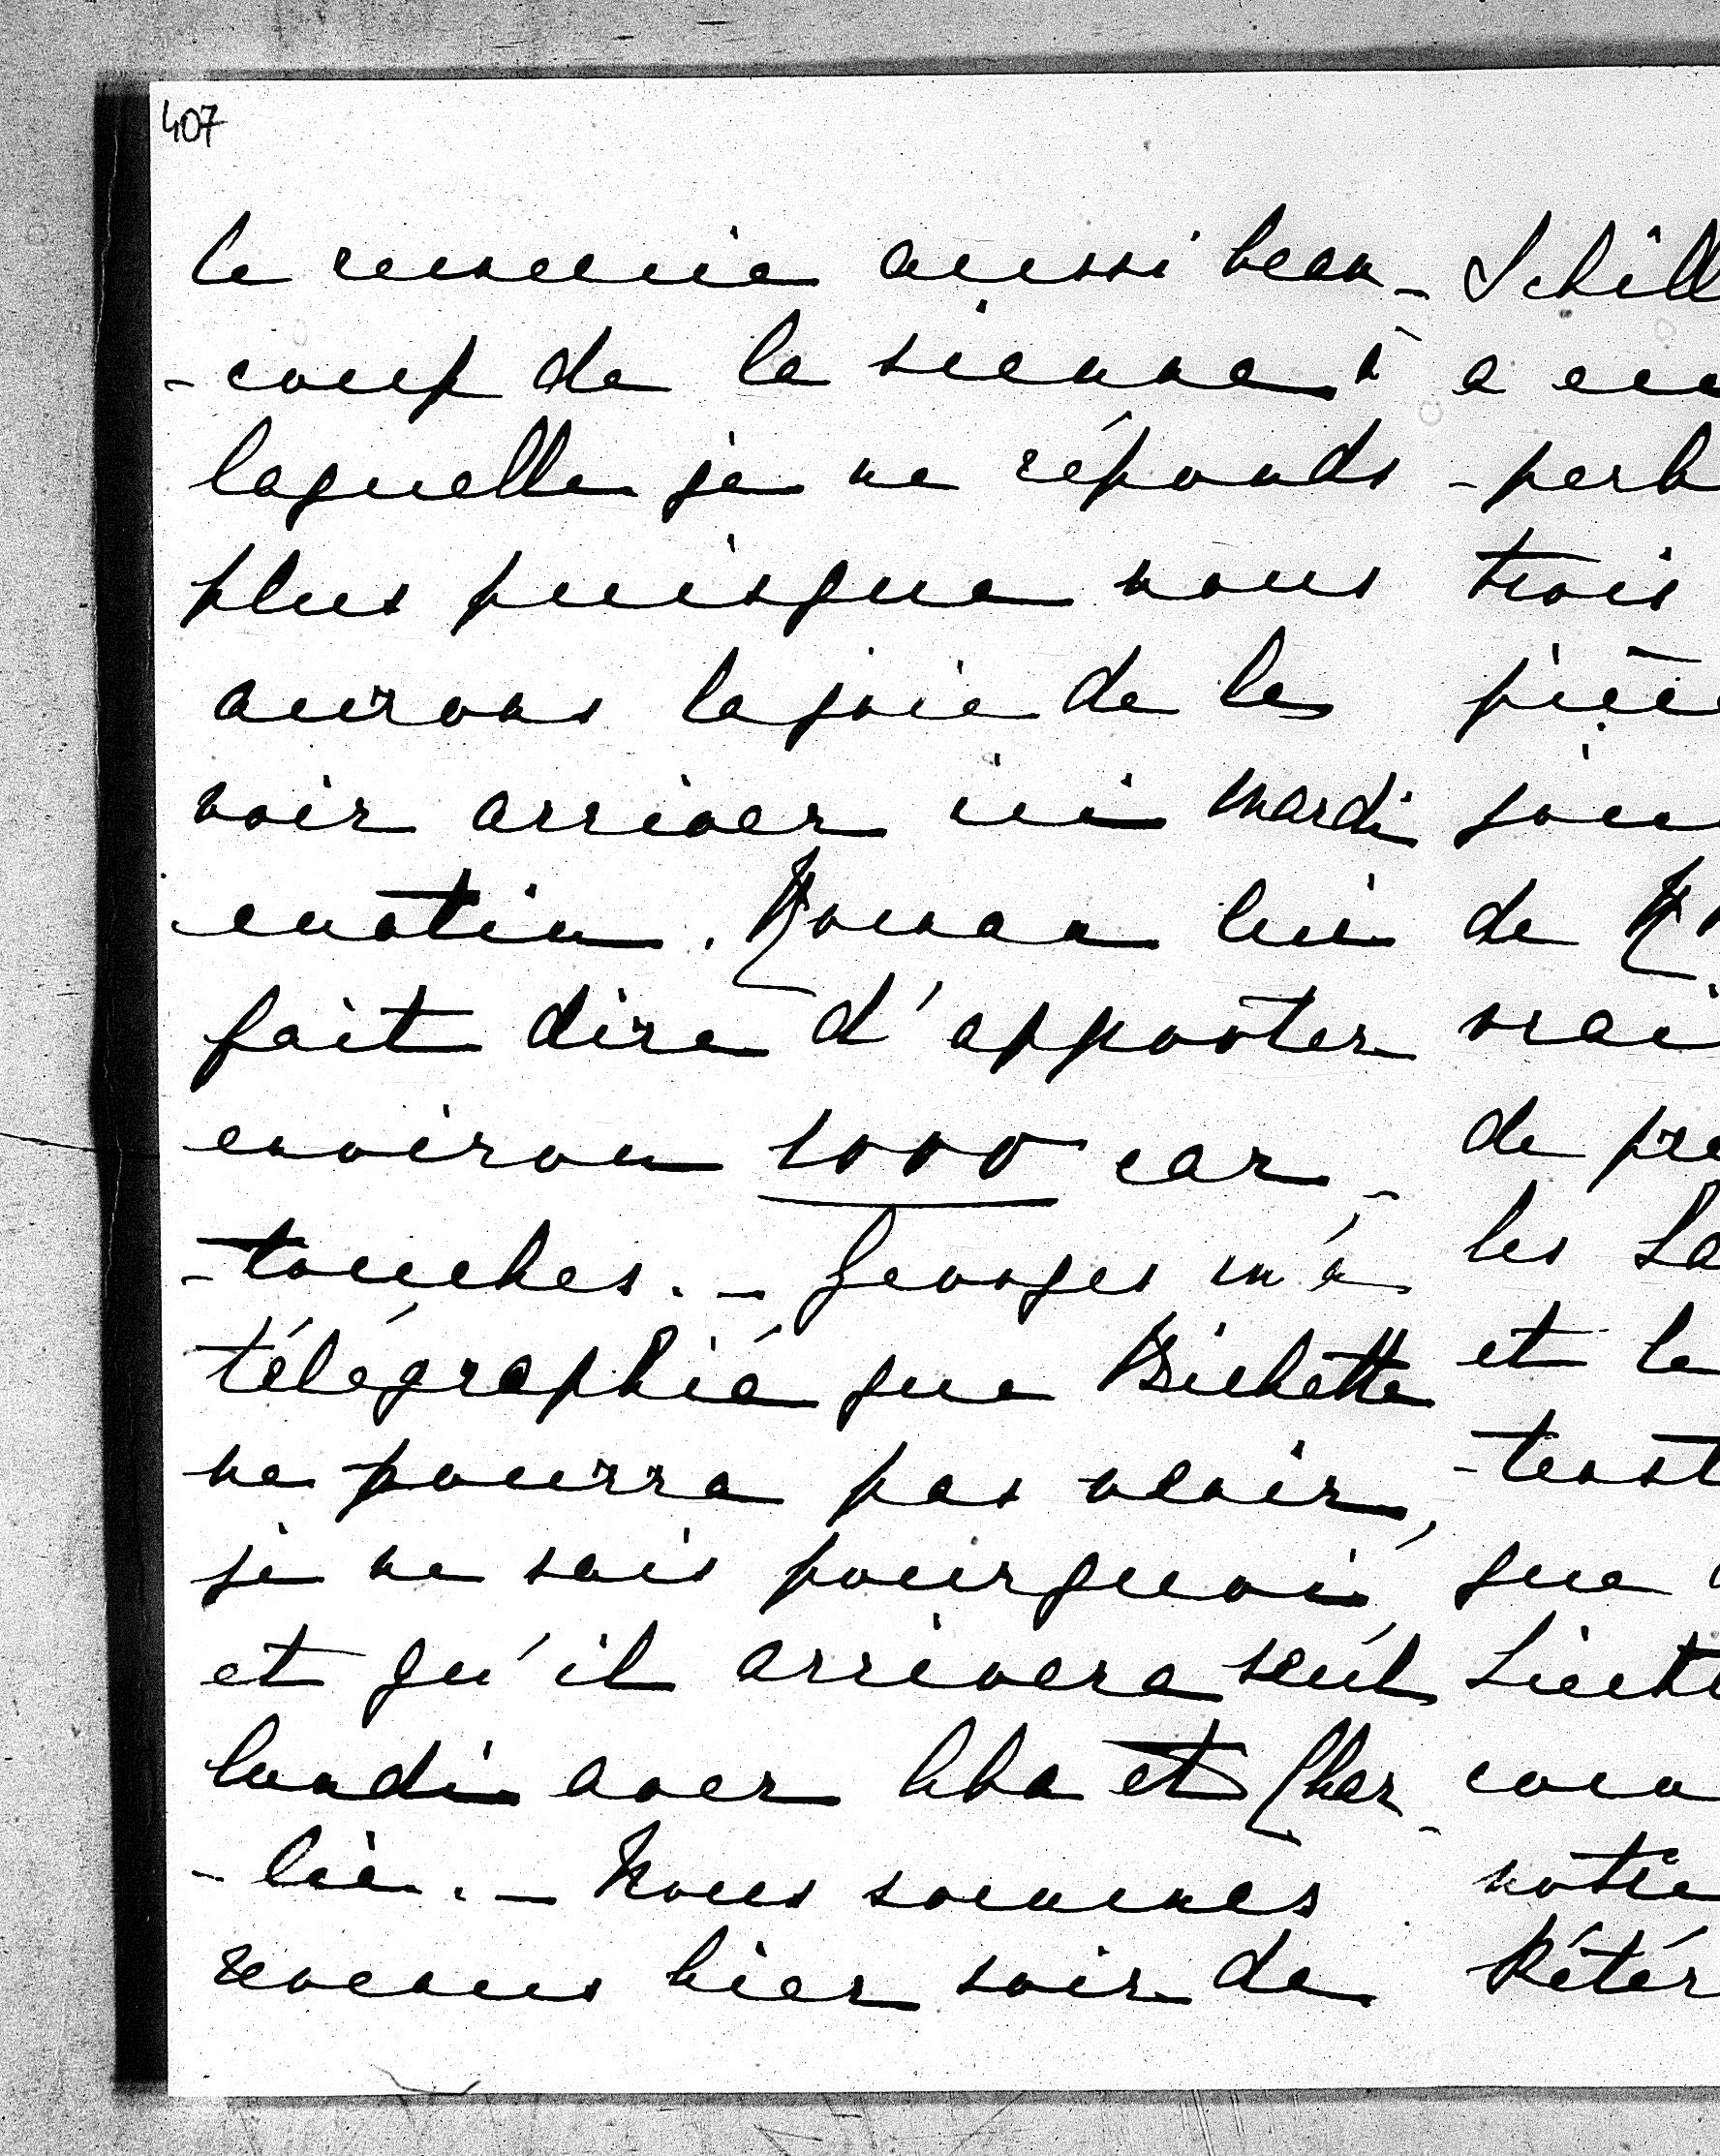 407
le remercie aussi beau-
-coup de la sienne à
laquelle je ne réponds
plus puisque nous
aurons la joie de les
voir arriver ici mardi
matin. Roman lui
fait dire d'apporter
environ 1000 car-
-touches. - Georges m'a
télégraphié que Bichette
ne pourra pas venir,
je ne sais pourquoi,
et qu'il arrivera seul
lundi avec et Char-
-lie. - Nous sommes
revenus hier soir de
Schill
a
-perb
trois
de
vrai
de pre
les La
et le
que
notre
Pétér